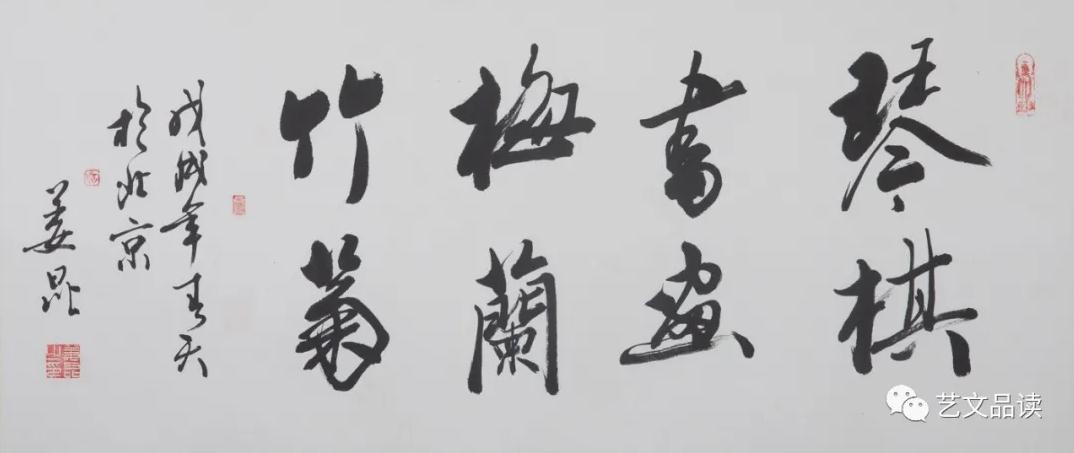 琴棋
書畫
梅蘭
竹菊
戊戌年春天
於北京
姜昆
艺文品读